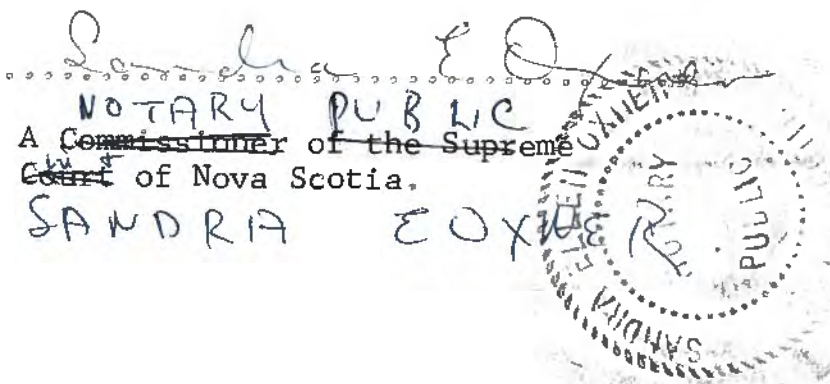 Sandra E Oxner
NOTARY PUBLIC
A Commissioner of the Supreme
Court of Nova Scotia.
SANDRA E OXNER
SANDRA ELLEN OXNER
NOTARY PUBLIC